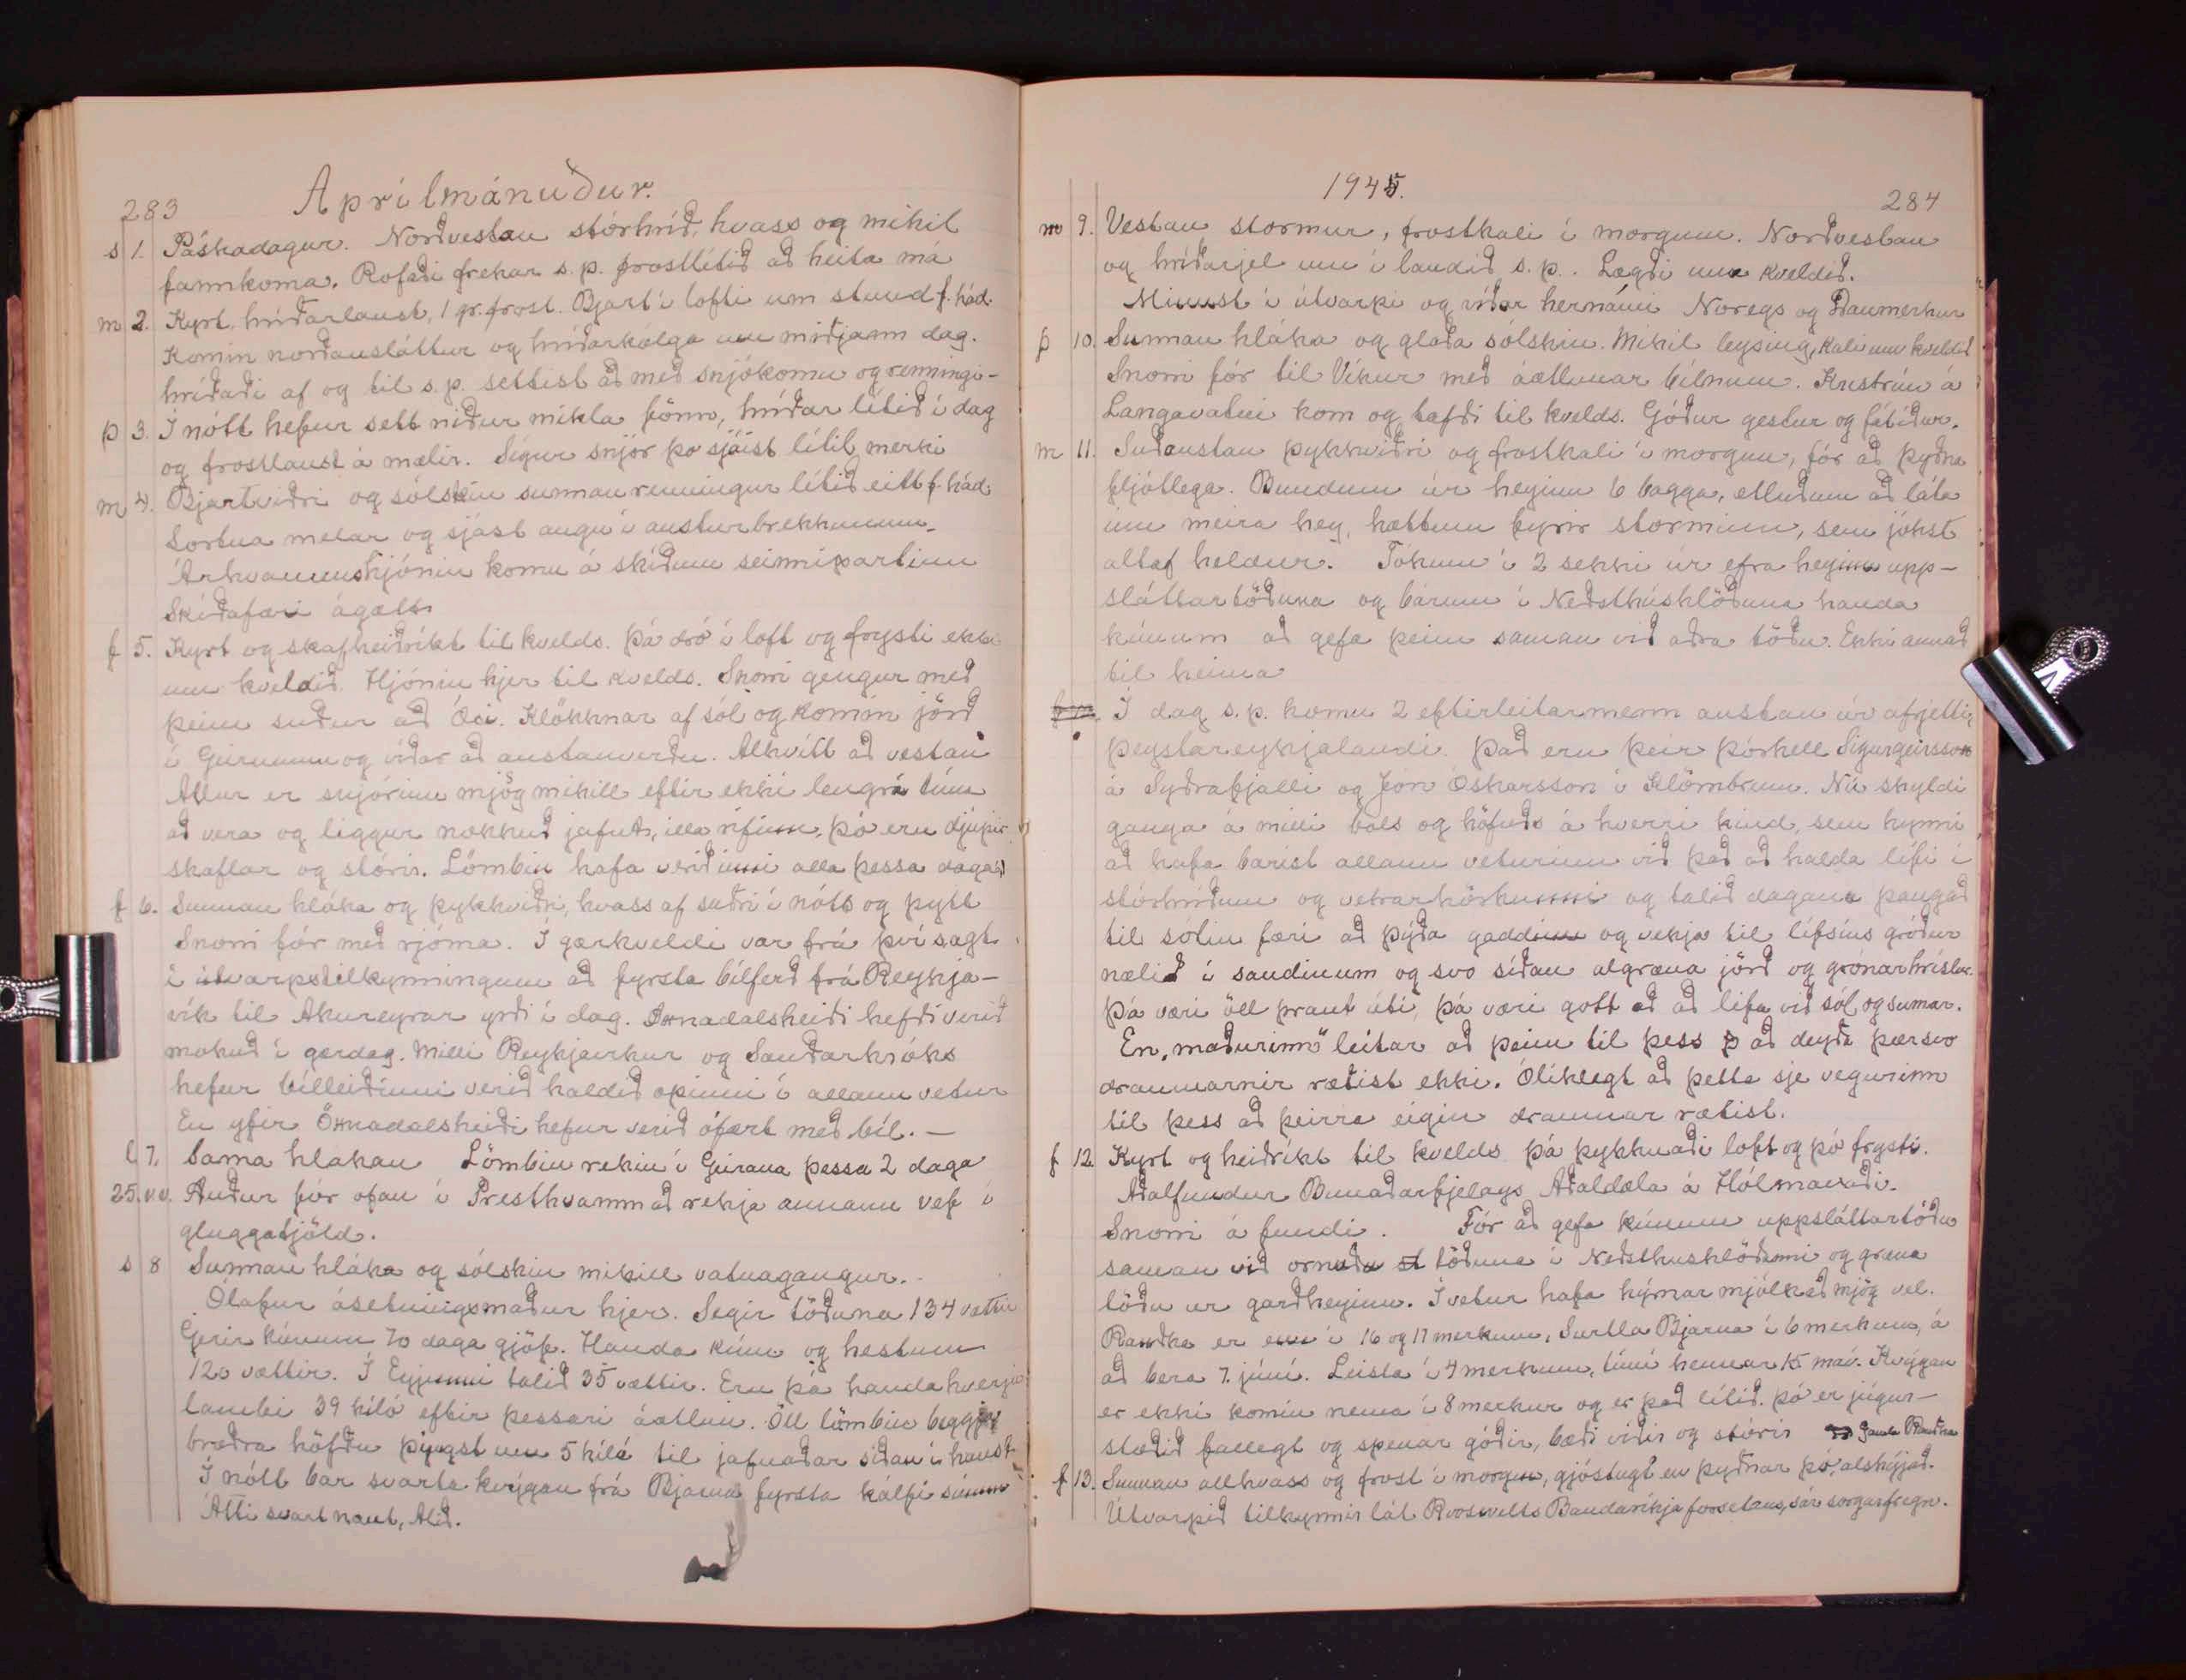 283 Aprílmánuður.
s 1. Páskadagur. Norðvestan stórhríð, hvass og mikil
fannkoma. Rofaði frekar s.p. frostlítið að heita má
m 2. Kyrt, hríðarlaust, 1 gr. frost. Bjart í lofti um stund f. hád.
Komin norðansláttur og hríðarkólga um miðjann dag.
hríðaði af og til s.p. settist að með snjókomu og renningi-
þ 3. Í nótt hefur sett niður mikla fönn, hríðar lítið í dag
og frostlaust á mælir. Sígur snjór þó sjáist lítil merki
m 4. Bjartviðri og sólskin sunnan renningur lítið eitt f. hád.
Sortna melar og sjást augu í austurbrekkunum.
Árhvammshjónin komu á skíðum seinnipartinn
Skíðafæri ágætt.
f 5. Kyrt og skafheiðríkt til kvelds. Þá dró í loft og frysti ekki
um kveldið. Hjónin hjer til kvelds. Snorri gengur með
þeim suður að Æsi. Klökknar af sól og komin jörð
í Geirunum og víðar að austanverðu. Alhvítt að vestan
Allur er snjórinn mjög mikill eftir ekki lengra tíma
að vera og liggur nokkuð jafnt, illa rifinn, þó eru djúpir
skaflar og stórir. Lömbin hafa verið inni alla þessa daga
f 6. Sunnan hláka og þykkviðri, hvass af suðri í nótt og þýtt
Snorri fór með rjóma. Í gærkveldi var frá því sagt
í útvarpstilkynningum að fyrsta bílferð frá Reykja-
vík til Akureyrar yrði í dag. Öxnadalsheiði hefði verið
mokuð í gærdag. Milli Reykjavíkur og Sauðárkróks
hefur bílleiðinni verið haldið opinni í allann vetur
En yfir Öxnadalsheiði hefur verið ófært með bíl. —
l 7. Sama hlákan Lömbin rekin í Geirana þessa 2 daga
25. v.v. Auður fór ofan í Presthvamm að rekja annann vef í
gluggatjöld.
s 8 Sunnan hláka og sólskin mikill vatnagangur.
Ólafur ásetningsmaður hjer. Segir töðuna 134 vættir
Gerir kúnum 70 daga gjöf. Handa kúm og hestum
120 vættir. Í Eyjunni talið 35 vættir. Eru þá handa hverju
lambi 39 kíló eftir þessari áætlun. Öll lömbin beggja
bræðra höfðu þyngst um 5 kíló til jafnaðar síðan í haust
Í nótt bar svarta kvýgan frá Bjarna fyrsta kálfi sínum
Átti svart naut, Alið.
1945. 284
m 9. Vestan stormur, frostkali í morgun. Norðvestan
og hríðarjel um í landið s.p. Lægði um kveldið.
Minnst í útvarpi og víðar hernámi Noregs og Danmerkur
þ 10. Sunnan hláka og glaða sólskin. Mikil leysing, kali um kveldið
Snorri fór til Víkur með áætlunar bílnum. Kristrún á
Langavatni kom og tafði til kvelds. Góður gestur og fátíður.
m 11. Suðaustan þykkviðri og frostkali í morgun, fór að þyðna
fljótlega. Bundum úr heyinu 6 bagga, ætluðum að láta
inn meira hey, hættum fyrir storminum, sem jókst
altaf heldur. Tókum í 2 sekki úr efra heyinu upp-
sláttartöðuna og bárum í Neðsthúshlöðuna handa
kúnum að gefa þeim saman við aðra töðu. Ekki annað
til heima
Í dag s.p. komu 2 eftirleitarmenn austan úr afrjetti,
Þeystareykjalandi. Það eru þeir Þórkell Sigurgeirsson
á Syðrafjalli og Jón Óskarsson í Klömbrum. Nú skyldi
ganga á milli bols og höfuðs á hverri kind, sem kynni
að hafa barist allann veturinn við það að halda lífi í
stórhríðum og vetrarhörkunni og talið dagana þangað
til sólin færi að þýða gaddinn og vekja til lífsins gróður
nælið í sandinum og svo síðan algræna jörð og grónar hríslur.
Þá væri öll þraut úti, þá væri gott að að lifa við sól og sumar.
En, maðurinn" leitar að þeim til þess að deyða þær svo
draumarnir rætist ekki. Ólíklegt að þetta sje vegurinn
til þess að þeirra eigin draumar rætist.
f 12 Kyrt og heiðríkt til kvelds þá þykknaði loft og þó frysti.
Aðalfundur Bunaðarfjelags Aðaldæla á Hólmavaði.
Snorri á fundi. Fór að gefa kúnum uppsláttartöðu
saman við ornuðu töðuna í Neðsthushlöðunni og græna
töðu ur garðheyinu. Í vetur hafa kýrnar mjólkað mjög vel.
Rauðka er í 16 og 17 merkum, Surtla Bjarna í 6 merkum, á
að bera 7. júní. Leista í 4 merkum, tími hennar 15 maí. Kvýgan
er ekki komin nema í 8 merkur og er það lítið. Þó er júgur-
stæðið fallegt og spenar góðir, bæði víðir og stórir Gamla Rauðka
f 13. Sunnan allhvass og frost í morgun, gjóstugt en þyðnar þó, alskýjað.
Útvarpið tilkynnir lát Roosvelts Bandaríkja forsetans, sár sorgarfregn.